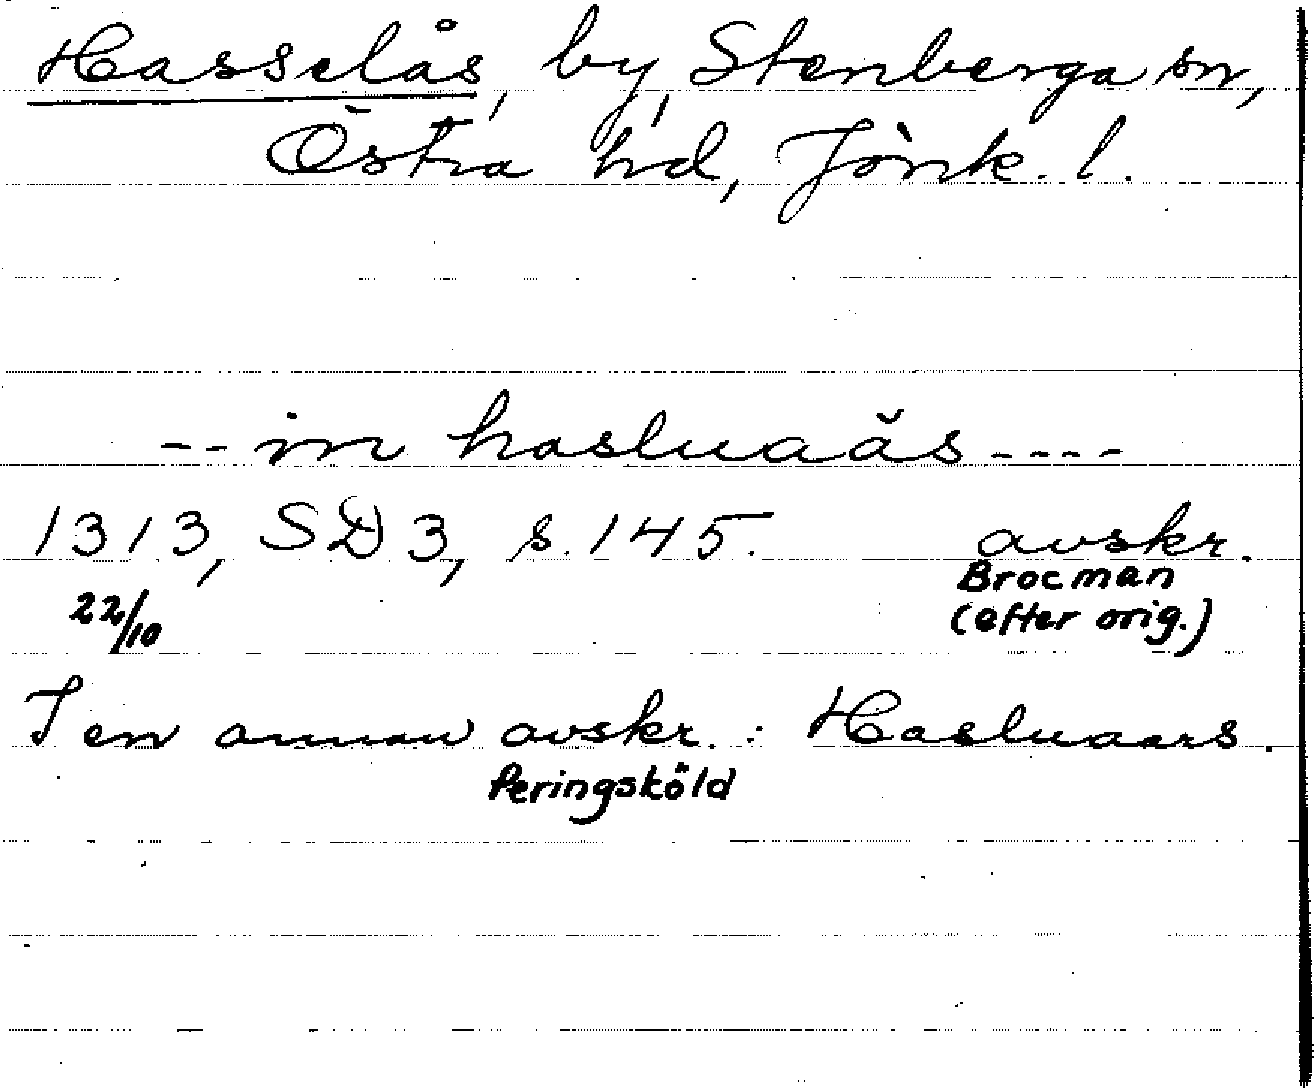 Hasselås, by, Stenberga sn,
Östra hd, Jönk. l.
-- in hasluaås ----
1313, SD 3, s. 145. avskr.
22/10 Brocman
(efter orig.)
I en annan avskr. : Hasluaars.
Peringsköld